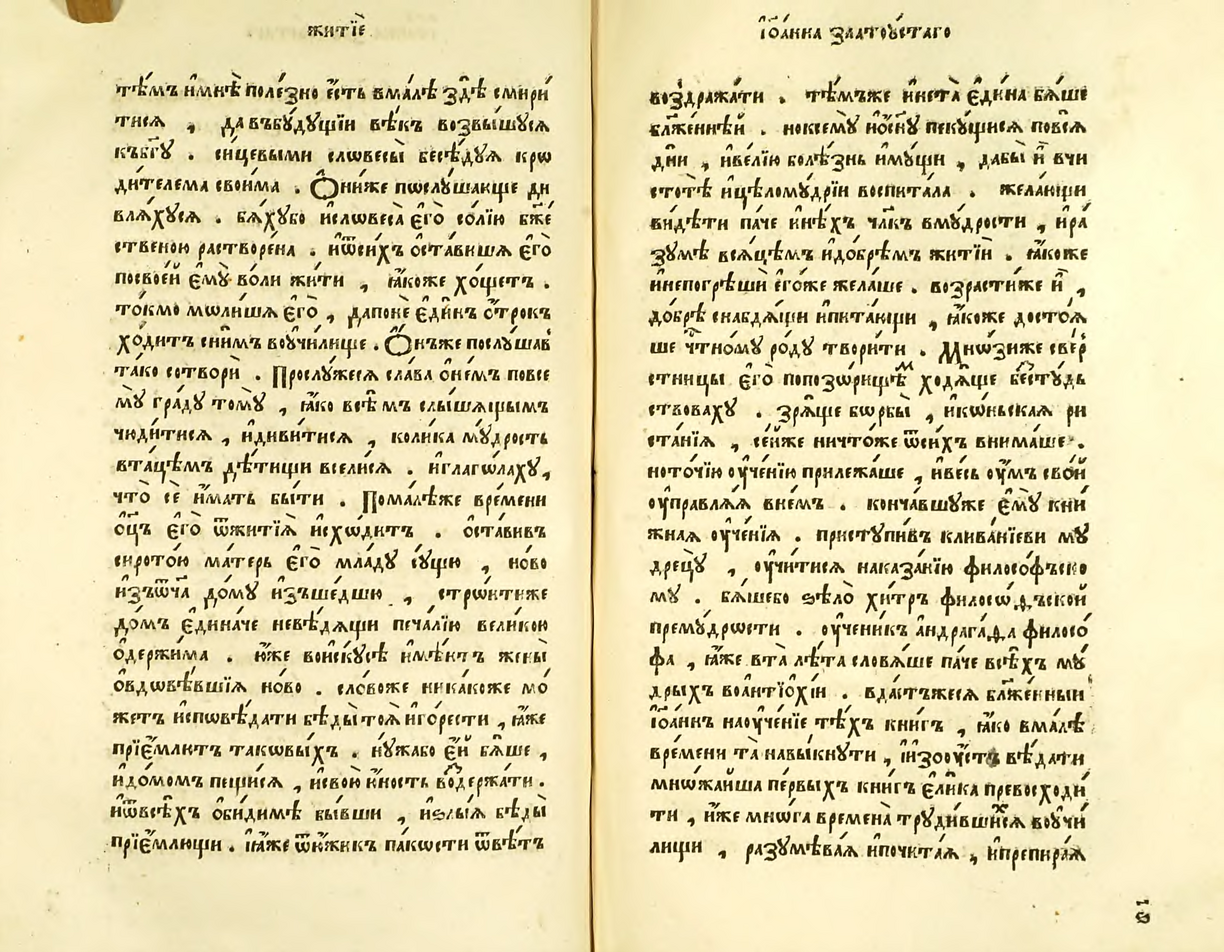 житїѐ
тѣ́мъ и҆мнѣ̀ поле́зно є҆́сть вма́лѣ здѣ̀ смири́
тисѧ , давъбꙋ́дꙋщїи вѣ́къ возвы́шꙋсѧ
къбг҃ꙋ . сицевы́ми словесы̀ бесѣ́дꙋѧ крѡ
ди́телема свои́ма . Ѻ҆ни́же пѡслꙋ́шающе ди
влѧ́хꙋсѧ . бѧ́хꙋбо и҆словеса̀ є҆гѡ̀ со́лїю бж҃е
ственою растворе́на . и҆ѿси́хъ ѡ҆ста́вишѧ є҆го̀
посвое́й є҆мꙋ̀ во́ли жи́ти , ꙗ҆́коже хо́щетъ .
то́кмо мѡли́шѧ є҆го̀ , дапонѐ є҆ди́нъ ѻ҆́трокъ
хо́дитъ сни́мъ воучи́лище . Ѻ҆́нъже послꙋ́шавъ
та́ко сотворѝ . Прослꙋ́жесѧ сла́ва ѡ҆не́мъ повсе
мꙋ̀ гра́дꙋ томꙋ̀ , ꙗ҆́ко всѣ́мъ слы́шѧщымъ
чюди́тисѧ , и҆диви́тисѧ , коли́ка мꙋ́дрость
вта́цѣмъ дѣ́тищи всели́сѧ . и҆глаго́лахꙋ ,
что̀ сѐ и҆́мать бы́ти . Пома́лѣже вре́мени
ѻ҆ц҃ъ є҆го̀ ѿжитїѧ̀ и҆схо́дитъ . ѡ҆ста́вивъ
сирото́ю ма́терь є҆го̀ мла́дꙋ сꙋ́щю , но́во
и҆зъѿч҃а до́мꙋ и҆зъше́дшю , стрѡ́итиже
до́мъ є҆дина́че невѣ́дѧщи печа́лїю вели́кою
ѻ҆держи́ма . ю҆́же вои́скꙋсѣ и҆мѣ́ютъ жены̀
ѻ҆вдовѣ́вшїѧ но́во . сло́воже ника́коже мо́
жетъ и҆сповѣ́дати бѣды̀ тоѧ̀ и҆го́рести , ꙗ҆́же
прїе́млютъ таковы́хъ . нꙋ́жабо є҆́й бѧ́ше ,
и҆до́момъ пещи́сѧ , и҆свою̀ ю҆́ность водержа́ти .
и҆ѿвсѣ́хъ ѻ҆би́димѣ бы́вши , и҆ѕлы́ѧ бѣды̀
прїе́млющи . ꙗ҆́же ѿю҆́жикъ па́кости ѿвѣ́тъ
і҆ѡа́нна златоꙋ́стаго
воздража́ти . тѣ́мъже и҆нста̀ є҆ди́на бѧ́ше
бл҃же́ннѣй . ноксемꙋ̀ и҆ѻ҆сн҃ꙋ пекꙋ́щисѧ повсѧ̀
дн҃и , и҆ве́лїю болѣ́знь и҆мꙋ́щи , дабы̀ и҆̀ вчи
стотѣ̀ и҆цѣломꙋ́дрїи воспита́ла . жела́ющи
ви́дѣти па́че и҆нѣ́хъ чл҃къ вмꙋ́дрости , и҆ра́
зꙋмѣ всѧ́цѣмъ и҆до́брѣмъ житїѝ . ꙗ҆́коже
и҆непогрѣшѝ є҆го́же жела́ше . возрасти́же и҆̀ ,
до́брѣ снабдѧ́щи и҆пита́ющи , ꙗ҆́коже досто́ѧ
ше чⷭ҇тномꙋ ро́дꙋ твори́ти . Мно́зиже све́р
стницы є҆го̀ попозѡ́рищемъ ходѧ́ще безстꙋ́дь
ствовахꙋ . зрѧ́ще борбы̀ , и҆ко́ньскаѧ ри
ста́нїѧ , се́йже ничто́же ѿси́хъ внима́ше .
ното́чїю оу҆че́нїю прилежа́ше , и҆ве́сь оу҆́мъ сво́й
оу҆правлѧ́ѧ вне́мъ . конча́вшꙋже є҆мꙋ̀ кни́
жнаѧ оу҆че́нїѧ . пристꙋпи́въ кливані́еви мꙋ
дрецꙋ̀ , оу҆чи́тисѧ наказа́нїю филосо́фъско
мꙋ . бѧ́шебо ѕѣлѡ̀ хи́тръ филосо́фъской
премꙋ́дрости . оу҆чени́къ а҆ндрага́ѳа филосо́
фа , ꙗ҆́же вта̀ лѣ́та словѧ́ше па́че всѣ́хъ мꙋ́
дрыхъ воа҆нтїохі́и . вда́стъжесѧ бл҃же́нный
і҆ѡа́ннъ наоу҆че́нїе тѣ́хъ кни́гъ , ꙗ҆́ко вма́лѣ
вре́мени та̀ навы́кнꙋти , и҆и҆зооу҆́стъ вѣ́дати
мнѡжа́йша пе́рвыхъ кни́гъ є҆ли́ка превосходи́
ти , и҆́же мнѡ́га времена̀ трꙋди́вшихсѧ воу҆чи́
лищи , разꙋмѣва́ѧ и҆почита́ѧ , и҆препира́ѧ